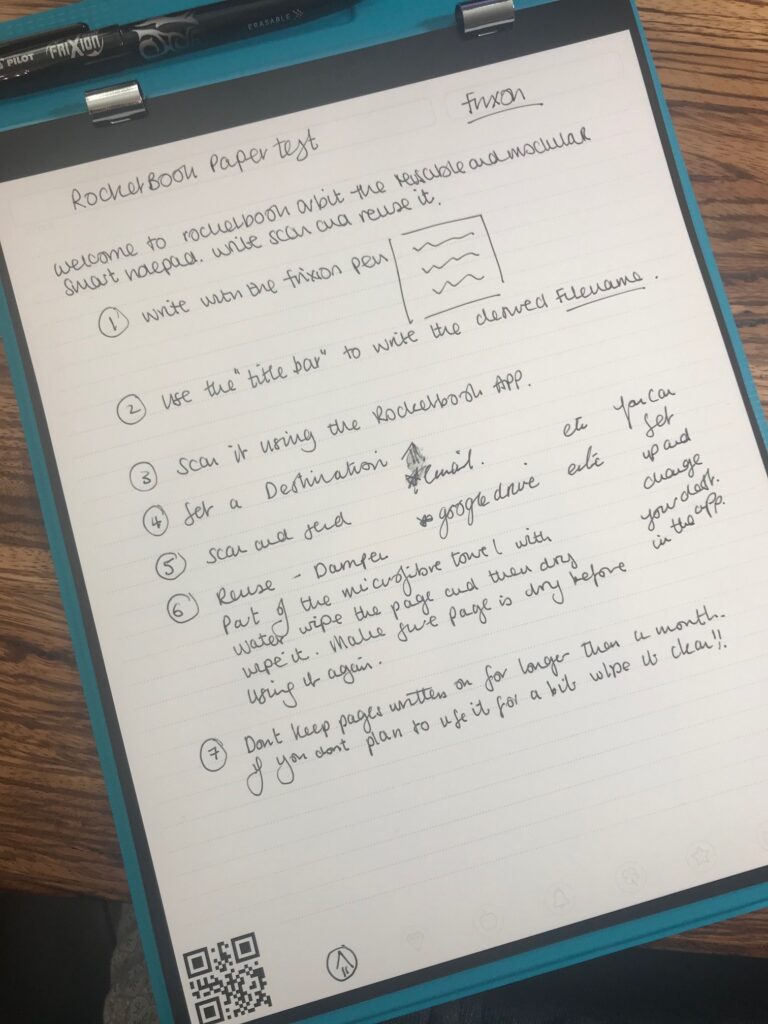 PILOT FRIXION ERASABLE
frixon
RocketBook Paper test
welcome to rocketbook orbit the reusable and modular
smart notepad. write scan and reuse it.
1 write with the frixon pen
2 use the "title bar" to write the desired Filename.
3 Scan it using the Rocketbook APP.
4 Set a Destination
* email. etc
5 scan and send
* google drive etc
you can
set
up and
change
your dest.
in the app.
6 Reuse - Dampen
Part of the microfibre towel with
water wipe the page and then dry
wipe it. Make sure page is dry before
using it again.
7 Dont keep pages written on for longer than a month.
if you dont plan to use it for a bit wipe it clean!!